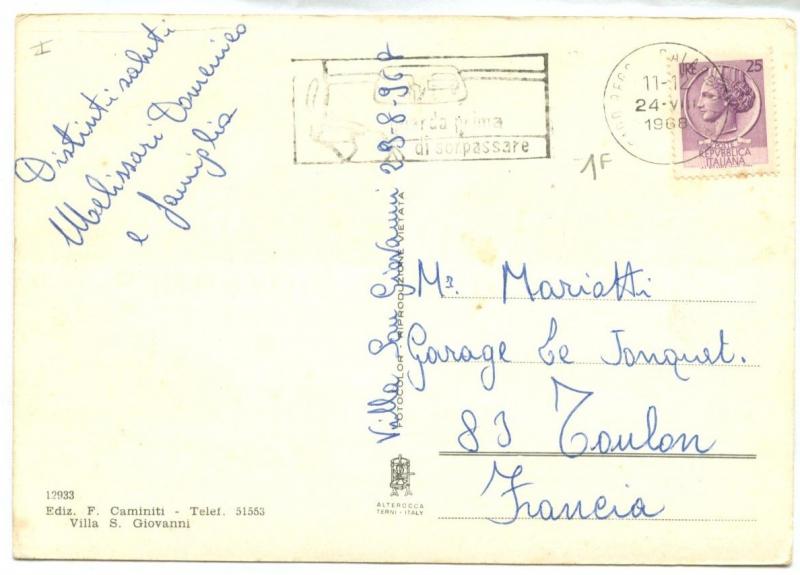 I
Distinti saluti
Melissari Domenico
e famiglia
12933
Ediz. F. Caminiti - Telef. 51553
Villa S. Giovanni
Villa San Giovanni 23-8-968
FOTOCOLOR - RIPRODUZIONE VIETATA
ALTEROCCA
TERNI - ITALY
arda prima
di sorpassare
11-12
24-VIII
1968
1F
LIRE 25
POSTE
REPVBBLICA
ITALIANA
Mr. Mariotti
Garage Le Jonquet.
83 Toulon
Francia